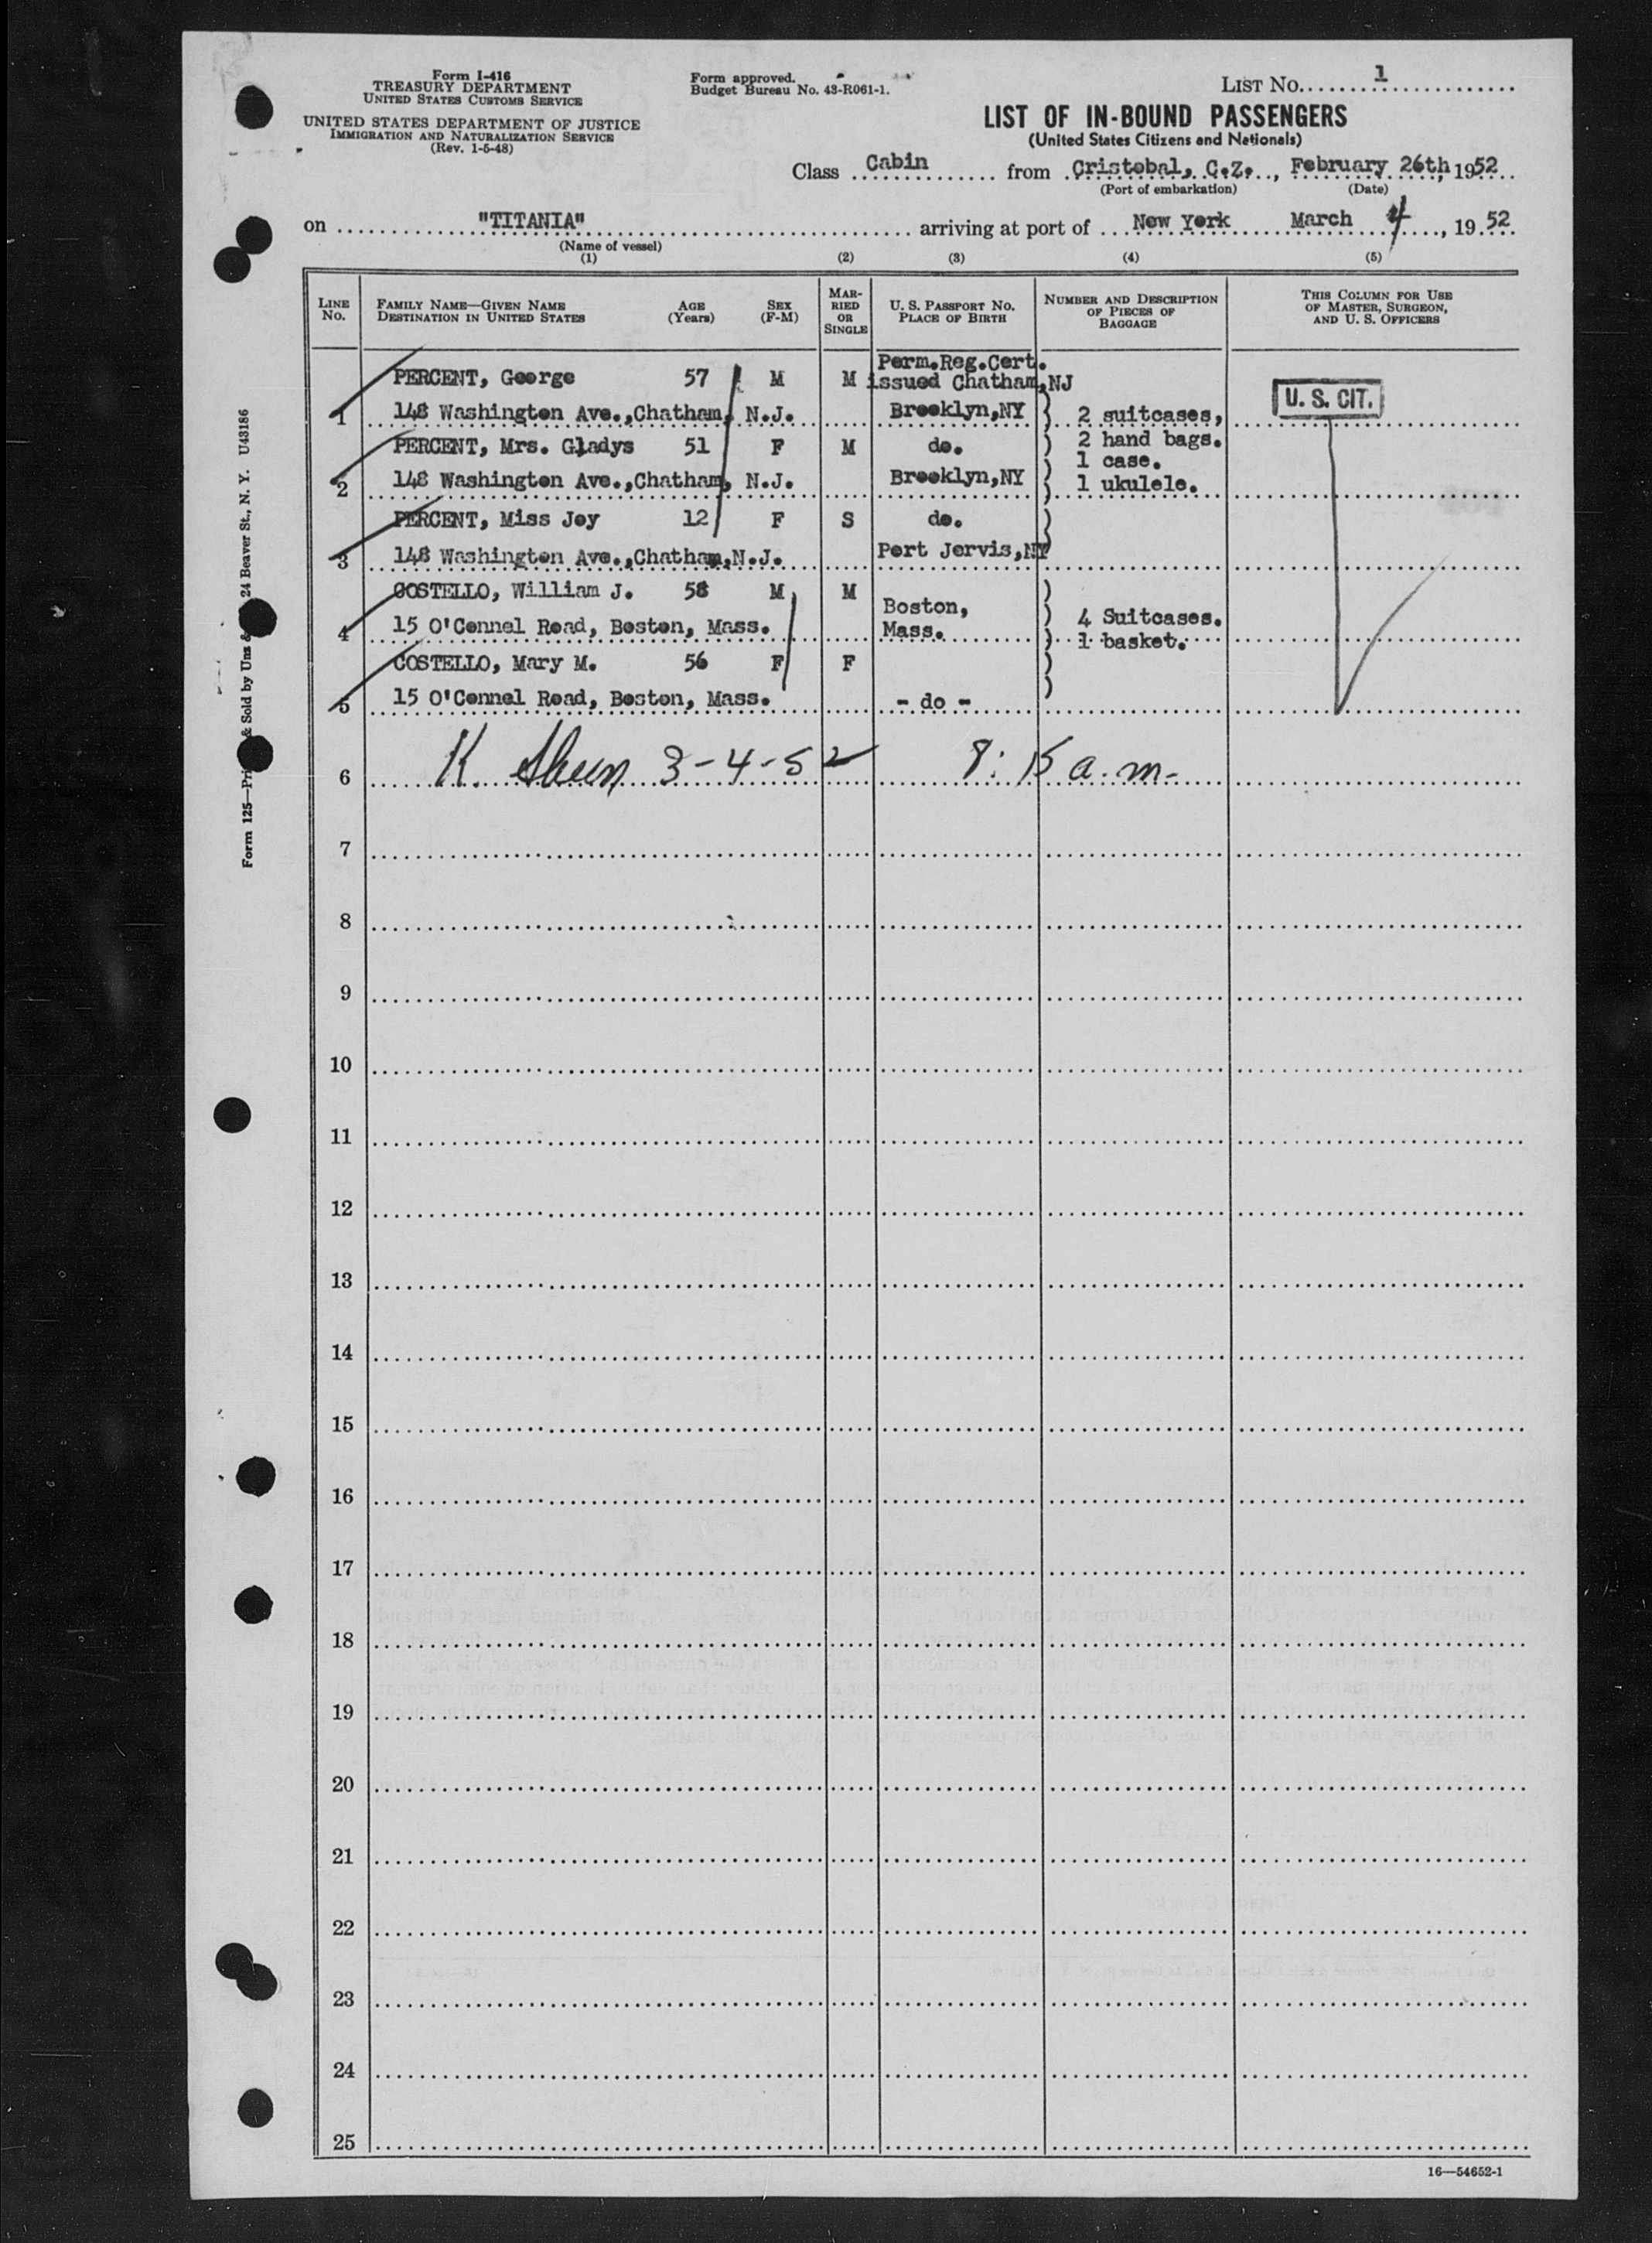 Form I-416
TREASURY DEPARTMENT
UNITED STATES CUSTOMS SERVICE
UNITED STATES DEPARTMENT OF JUSTICE
IMMIGRATION AND NATURALIZATION SERVICE
(Rev. 1-5-48)
Form approved.
Budget Bureau No. 43-R061-1.
LIST No. 1
LIST OF IN-BOUND PASSENGERS
(United States Citizens and Nationals)
Class Cabin from Cristobal, C.Z., February 26th, 1952
(Port of embarkation) (Date)
on "TITANIA" arriving at port of New York March 4, 1952
(Name of vessel)
(1) (2) (3) (4) (5)
LINE No. FAMILY NAME—GIVEN NAME DESTINATION IN UNITED STATES AGE (Years) SEX (F-M) MARRIED OR SINGLE U. S. PASSPORT NO. PLACE OF BIRTH NUMBER AND DESCRIPTION OF PIECES OF BAGGAGE THIS COLUMN FOR USE OF MASTER, SURGEON, AND U. S. OFFICERS
Perm.Reg.Cert.
PERCENT, George 57 M M issued Chatham,NJ
U. S. CIT.
1 148 Washington Ave.,Chatham, N.J. Brooklyn,NY ) 2 suitcases,
PERCENT, Mrs. Gladys 51 F M do. ) 2 hand bags.
1 case.
2 148 Washington Ave.,Chatham, N.J. Brooklyn,NY ) 1 ukulele.
PERCENT, Miss Joy 12 F S do. )
3 148 Washington Ave.,Chatham,N.J. Port Jervis,NY
COSTELLO, William J. 58 M M )
Boston,
4 15 O'Connel Road, Boston, Mass. Mass. ) 4 Suitcases.
) 1 basket.
COSTELLO, Mary M. 56 F F )
5 15 O'Connel Road, Boston, Mass. - do - )
6 K. 3-4-52 8:15 a.m.
7
8
9
10
11
12
13
14
15
16
17
18
19
20
21
22
23
24
25
16—54652-1
Form 125—Pri & Sold by Unz & 24 Beaver St., N. Y. U43186